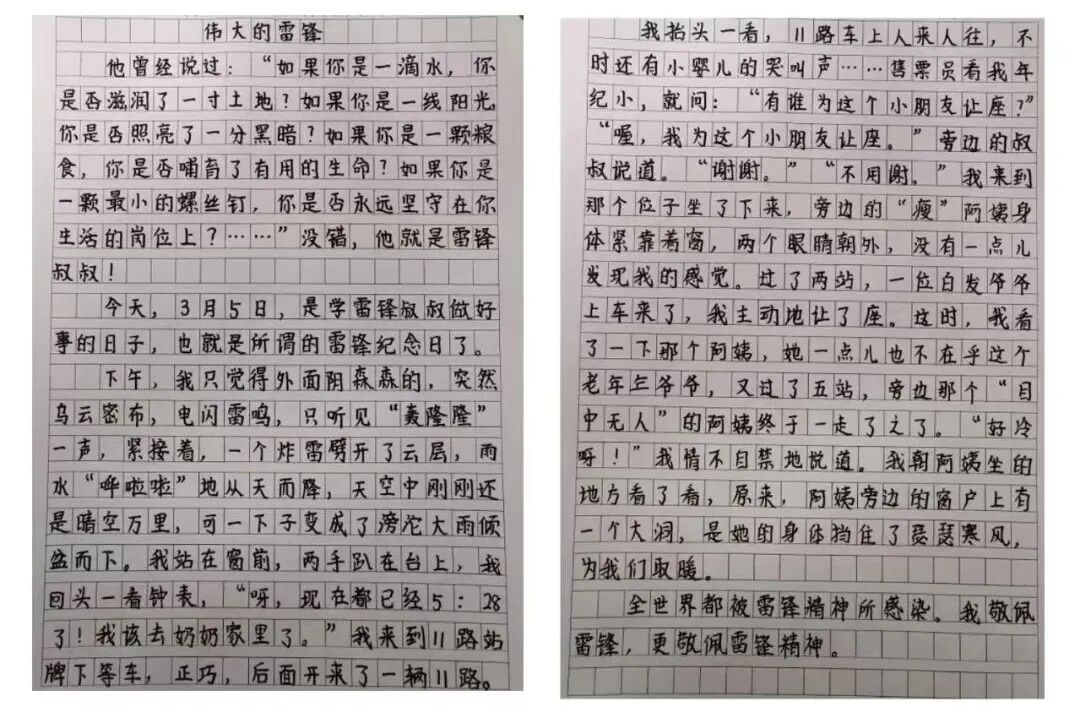 伟大的雷锋
他曾经说过：“如果你是一滴水，你
是否滋润了一寸土地？如果你是一线阳光，
你是否照亮了一分黑暗？如果你是一颗粮
食，你是否哺育了有用的生命？如果你是
一颗最小的螺丝钉，你是否永远坚守在你
生活的岗位上？……”没错，他就是雷锋
叔叔！
今天，3月5日，是学雷锋叔叔做好
事的日子，也就是所谓的雷锋纪念日了。
下午，我只觉得外面阴森森的，突然
乌云密布，电闪雷鸣，只听见“轰隆隆”
一声，紧接着，一个炸雷劈开了云层，雨
水“哗啦啦”地从天而降，天空中刚刚还
是晴空万里，可一下子变成了滂沱大雨倾
盆而下。我站在窗前，两手趴在台上，我
回头一看钟表，“呀，现在都已经5：28
了！我该去奶奶家里了。”我来到11路站
牌下等车，正巧，后面开来了一辆11路。
我抬头一看，11路车上人来人往，不
时还有小婴儿的哭叫声……售票员看我年
纪小，就问：“有谁为这个小朋友让座？”
“喔，我为这个小朋友让座。”旁边的叔
叔说道。“谢谢。”“不用谢。”我来到
那个位子坐了下来，旁边的“瘦”阿姨身
体紧靠着窗，两个眼睛朝外，没有一点儿
发现我的感觉。过了两站，一位白发爷爷
上车来了，我主动地让了座。这时，我看
了一下那个阿姨，她一点儿也不在乎这个
老年爷爷，又过了五站，旁边那个“目
中无人”的阿姨终于一走了之了。“好冷
呀！”我情不自禁地说道。我朝阿姨坐的
地方看了看，原来，阿姨旁边的窗户上有
一个大洞，是她的身体挡住了瑟瑟寒风，
为我们取暖。
全世界都被雷锋精神所感染。我敬佩
雷锋，更敬佩雷锋精神。